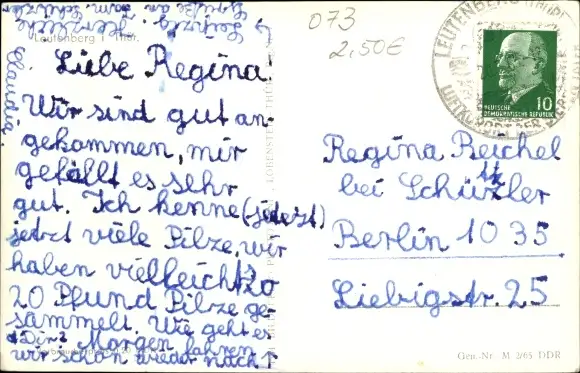 Leipzig. herzliche
Grüße an
Leutenberg i. Thür.
Claudia
Liebe Regina!
Wir sind gut an-
gekommen, mir
gefällt es sehr
gut. Ich kenne (jetzt)
jetzt viele Pilze, wir
haben vielleicht 20
20 Pfund Pilze ge-
sammelt. Wie geht es
Dir? Morgen fahren
wir schon wieder nach
073
2,50€
LEUTENBERG (THÜR)
LUFTKURORT DER
DEUTSCHE
DEMOKRATISCHE REPUBLIK
10
Regina Reichel
bei Schützler
Berlin 1035
Liebigstr. 25
Gen.-Nr. M 3/65 DDR